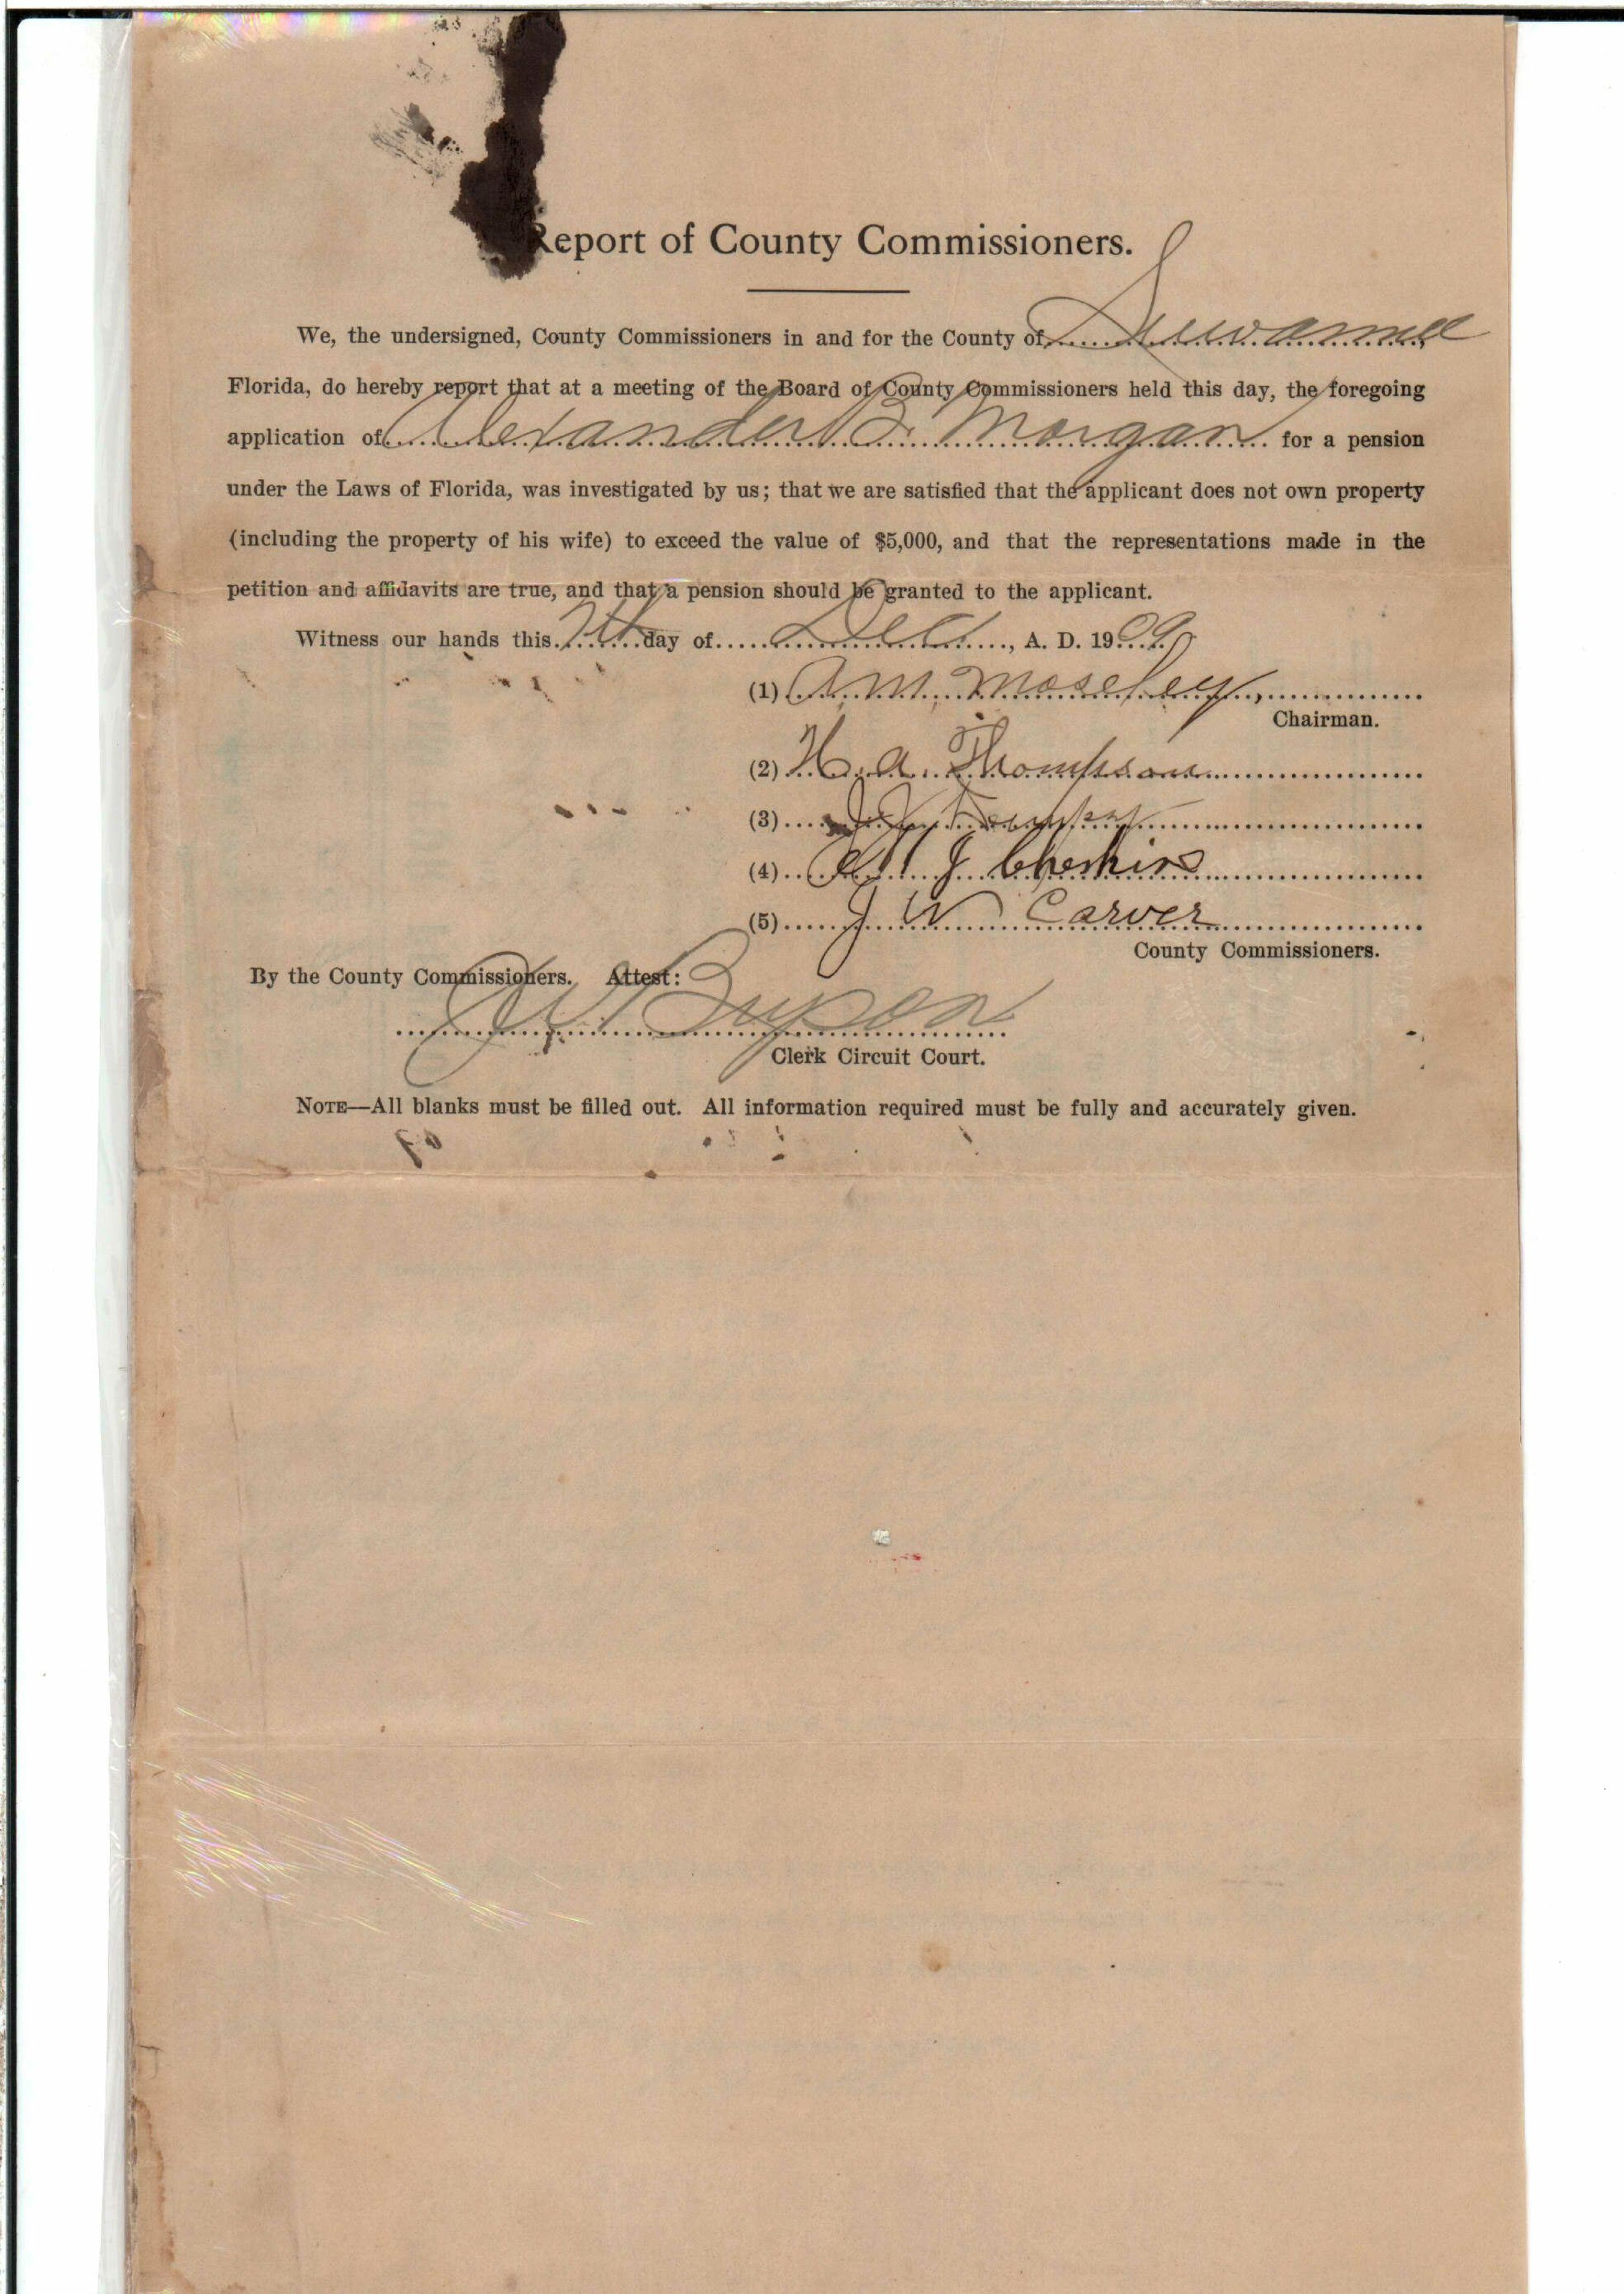 Report of County Commissioners.
We, the undersigned, County Commissioners in and for the County of Suwannee
Florida, do hereby report that at a meeting of the Board of County Commissioners held this day, the foregoing
application of Alexander B. Morgan for a pension
under the Laws of Florida, was investigated by us; that we are satisfied that the applicant does not own property
(including the property of his wife) to exceed the value of $5,000, and that the representations made in the
petition and affidavits are true, and that a pension should be granted to the applicant.
Witness our hands this 7th day of , A. D. 1909
(1) A. M. Moseley,
Chairman.
(2) H. A. Thompson
(3)
(4) J Cheshire
(5) J W Carver
County Commissioners.
By the County Commissioners. Attest:
J W Bryson
Clerk Circuit Court.
NOTE—All blanks must be filled out. All information required must be fully and accurately given.